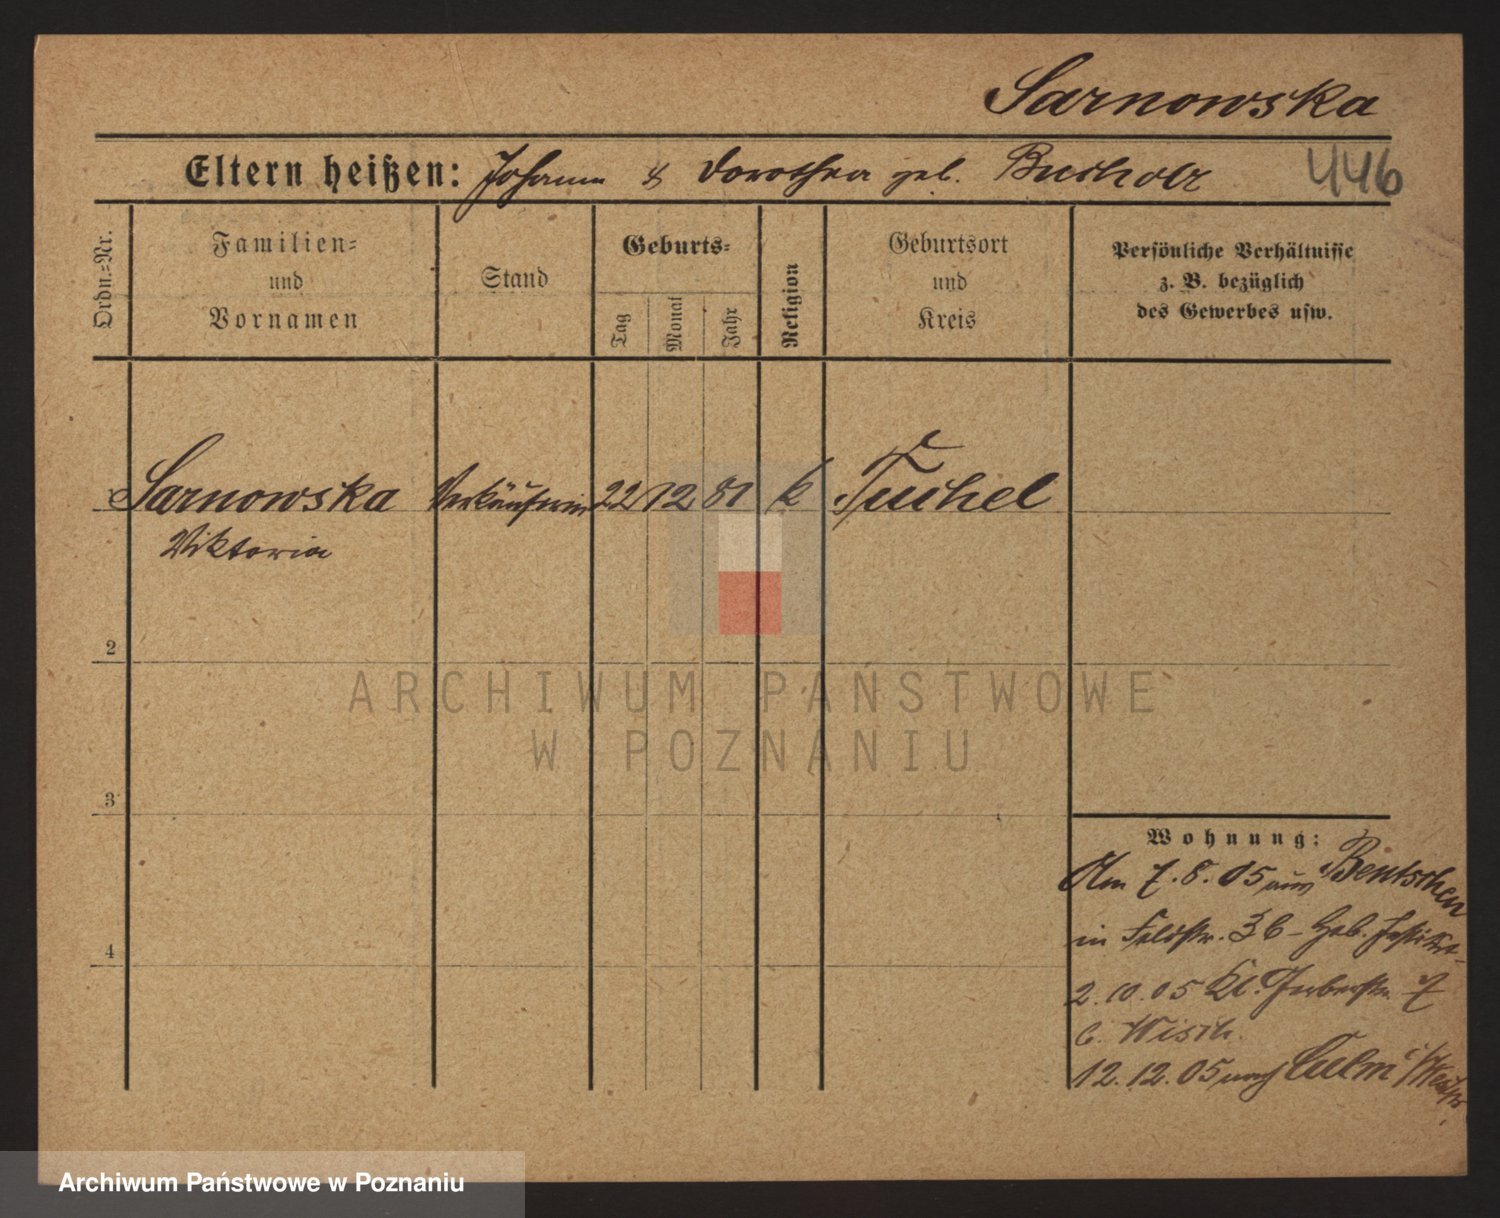 Sarnowska
Eltern heißen: Johann & Dorothea geb. Bucholz
446
Ordn.-Nr.
Familien-
und
Vornamen
Stand
Geburts-
Tag
Monat
Jahr
Religion
Geburtsort
und
Kreis
Persönliche Verhältnisse
z. B. bezüglich
des Gewerbes usw.
Sarnowska Verkäuferin 22 12 81 k Tuchel
Viktoria
2
3
4
Wohnung:
Am 7.8.05 aus Bentschen
in Feldstr. 36 - Geb. Institut-
2.10.05 Kl. Gerberstr. 7
b. Wisch.
12.12.05 nach Culm i/Westpr.
ARCHIWUM PAŃSTWOWE
W POZNANIU
Archiwum Państwowe w Poznaniu